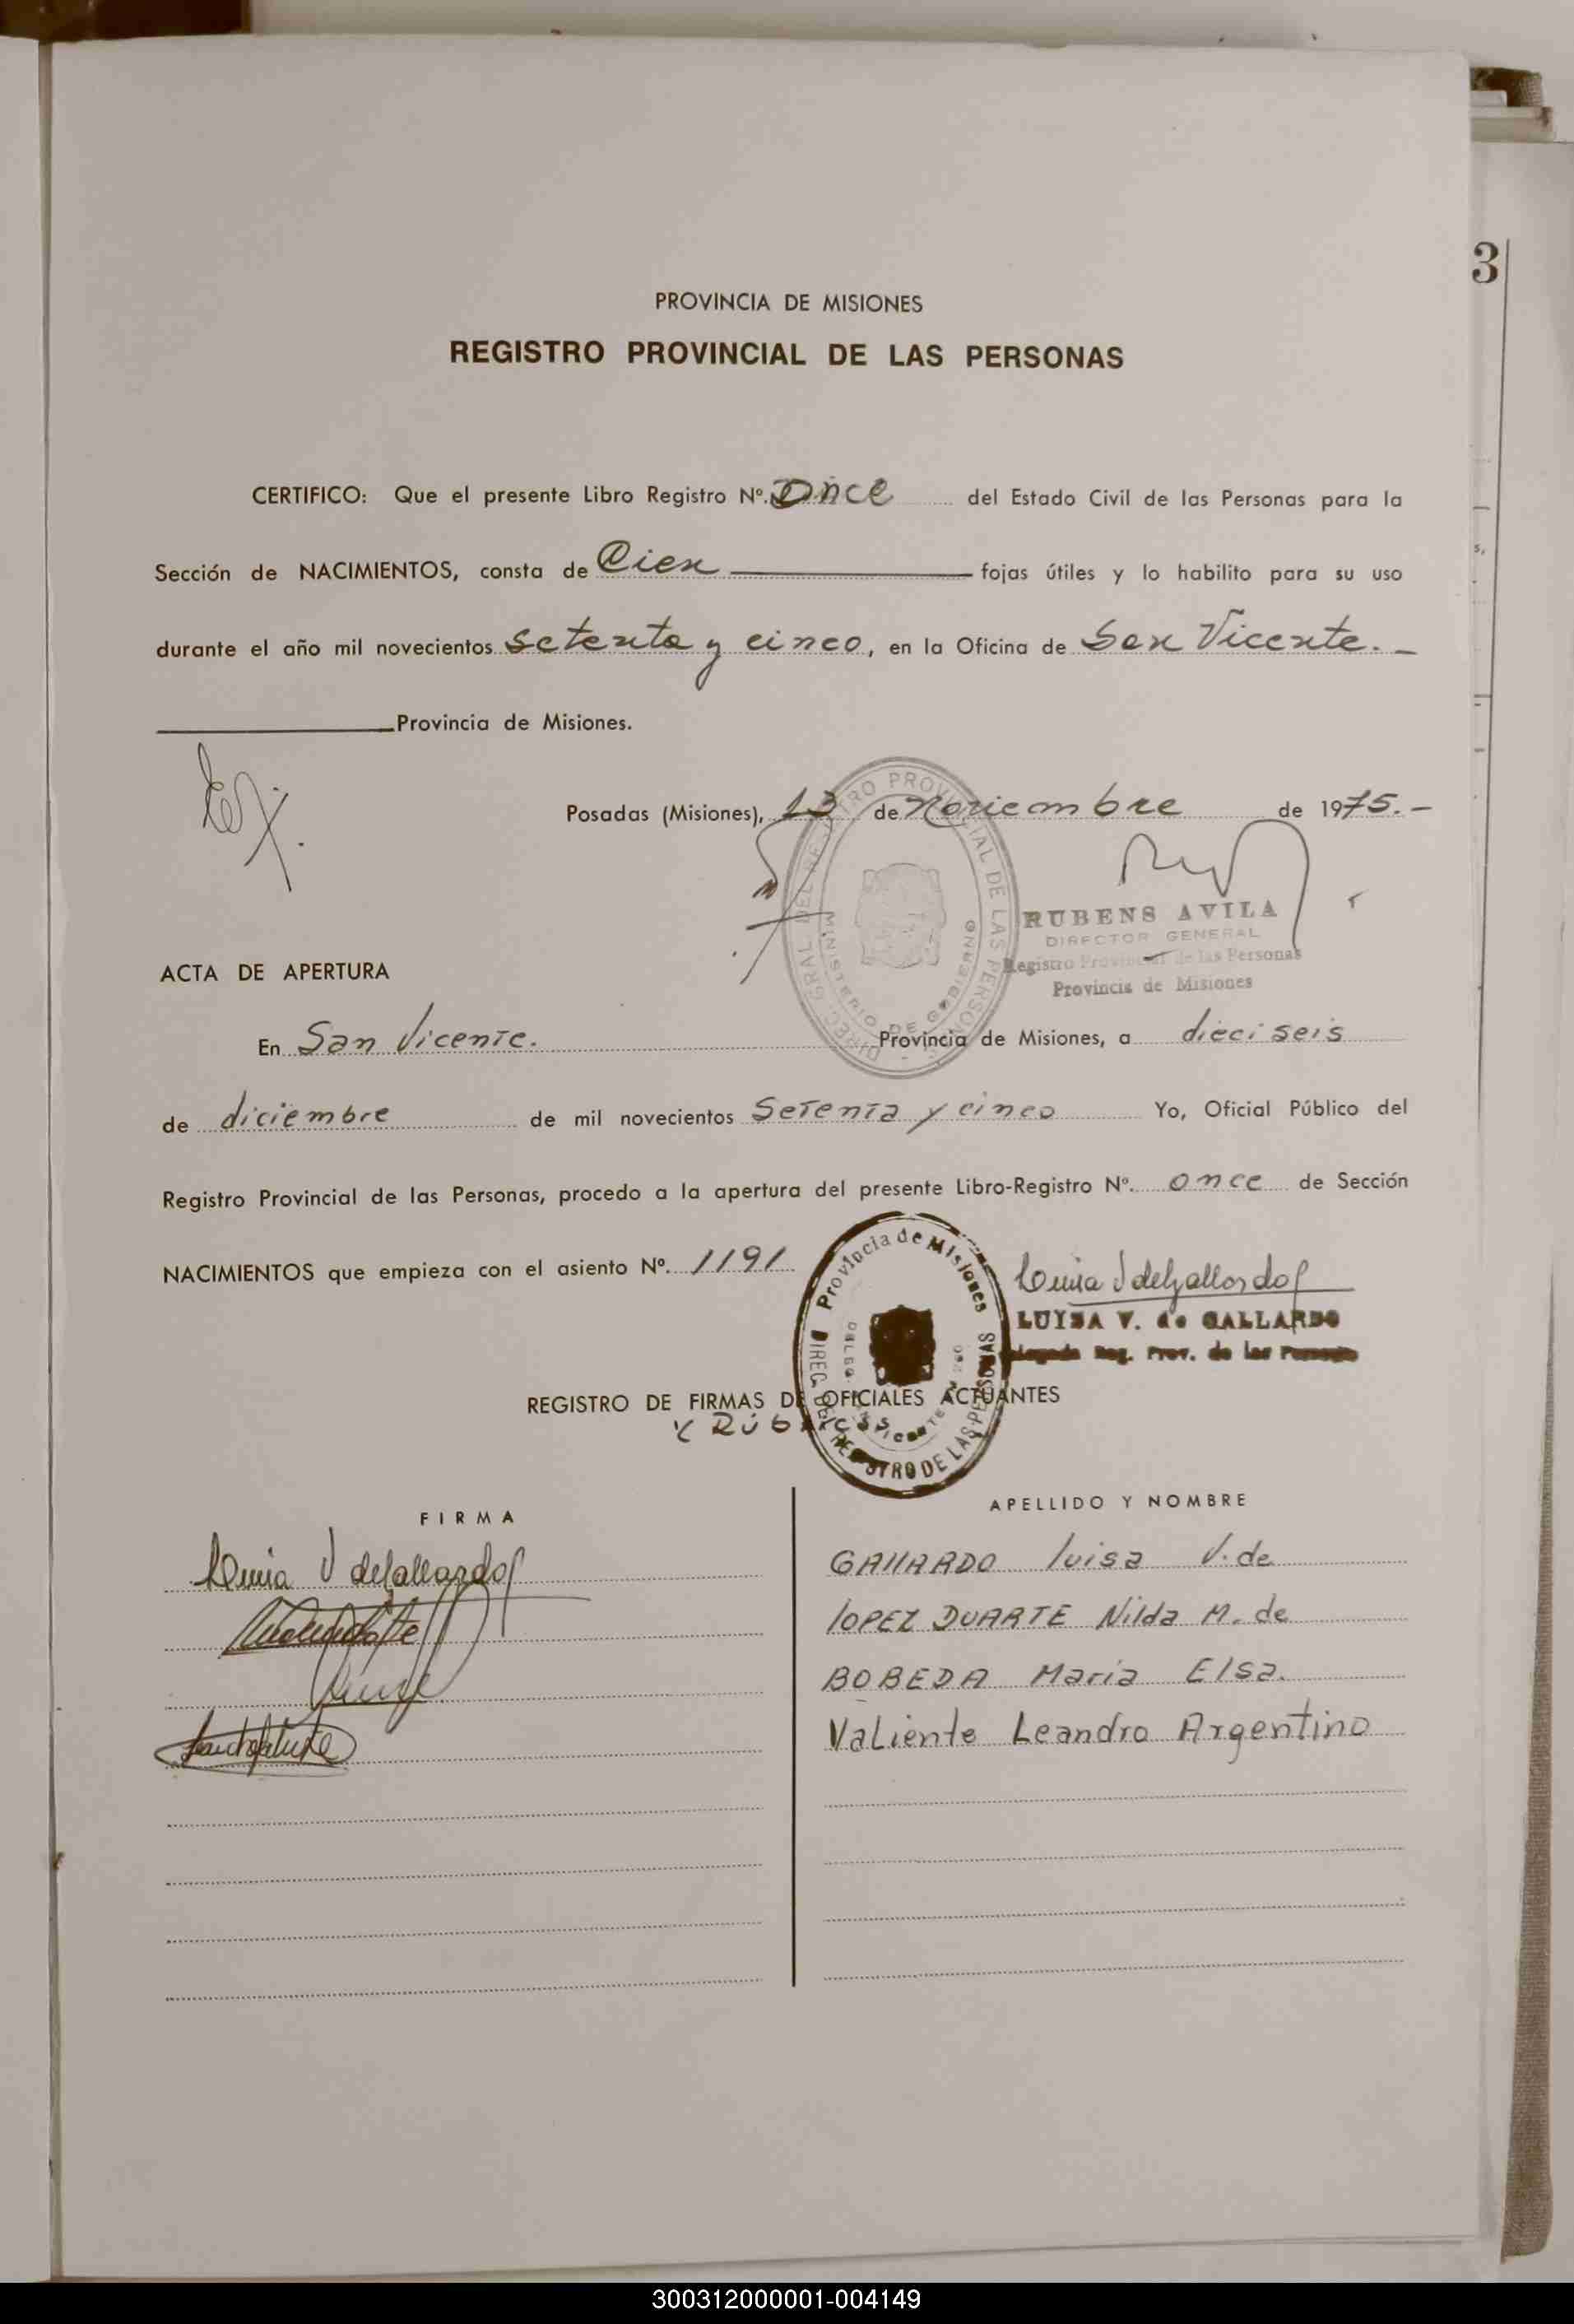 3
PROVINCIA DE MISIONES
REGISTRO PROVINCIAL DE LAS PERSONAS
CERTIFICO: Que el presente Libro Registro Nº. Once del Estado Civil de las Personas para la
Sección de NACIMIENTOS, consta de Cien fojas útiles y lo habilito para su uso
durante el año mil novecientos setenta y cinco, en la Oficina de San Vicente. -
Provincia de Misiones.
Posadas (Misiones), 13 de Noviembre de 1975. -
RUBENS AVILA
DIRECTOR GENERAL
Registro Provincial de las Personas
Provincia de Misiones
ACTA DE APERTURA
En San Vicente. Provincia de Misiones, a dieciseis
de diciembre de mil novecientos Setenta y cinco Yo, Oficial Público del
Registro Provincial de las Personas, procedo a la apertura del presente Libro-Registro Nº. once de Sección
NACIMIENTOS que empieza con el asiento Nº. 1191
Provincia de Misiones
DIREC. DEL REGISTRO DE LAS PERSONAS
Luisa V de Gallardo
LUISA V. de GALLARDO
Reg. Prov. de las Personas
REGISTRO DE FIRMAS DE OFICIALES ACTUANTES
FIRMA
APELLIDO Y NOMBRE
Luisa V de Gallardo
GALLARDO Luisa V. de
LOPEZ DUARTE Nilda M. de
BOBEDA Maria Elsa.
Valiente Leandro Argentino
300312000001-004149